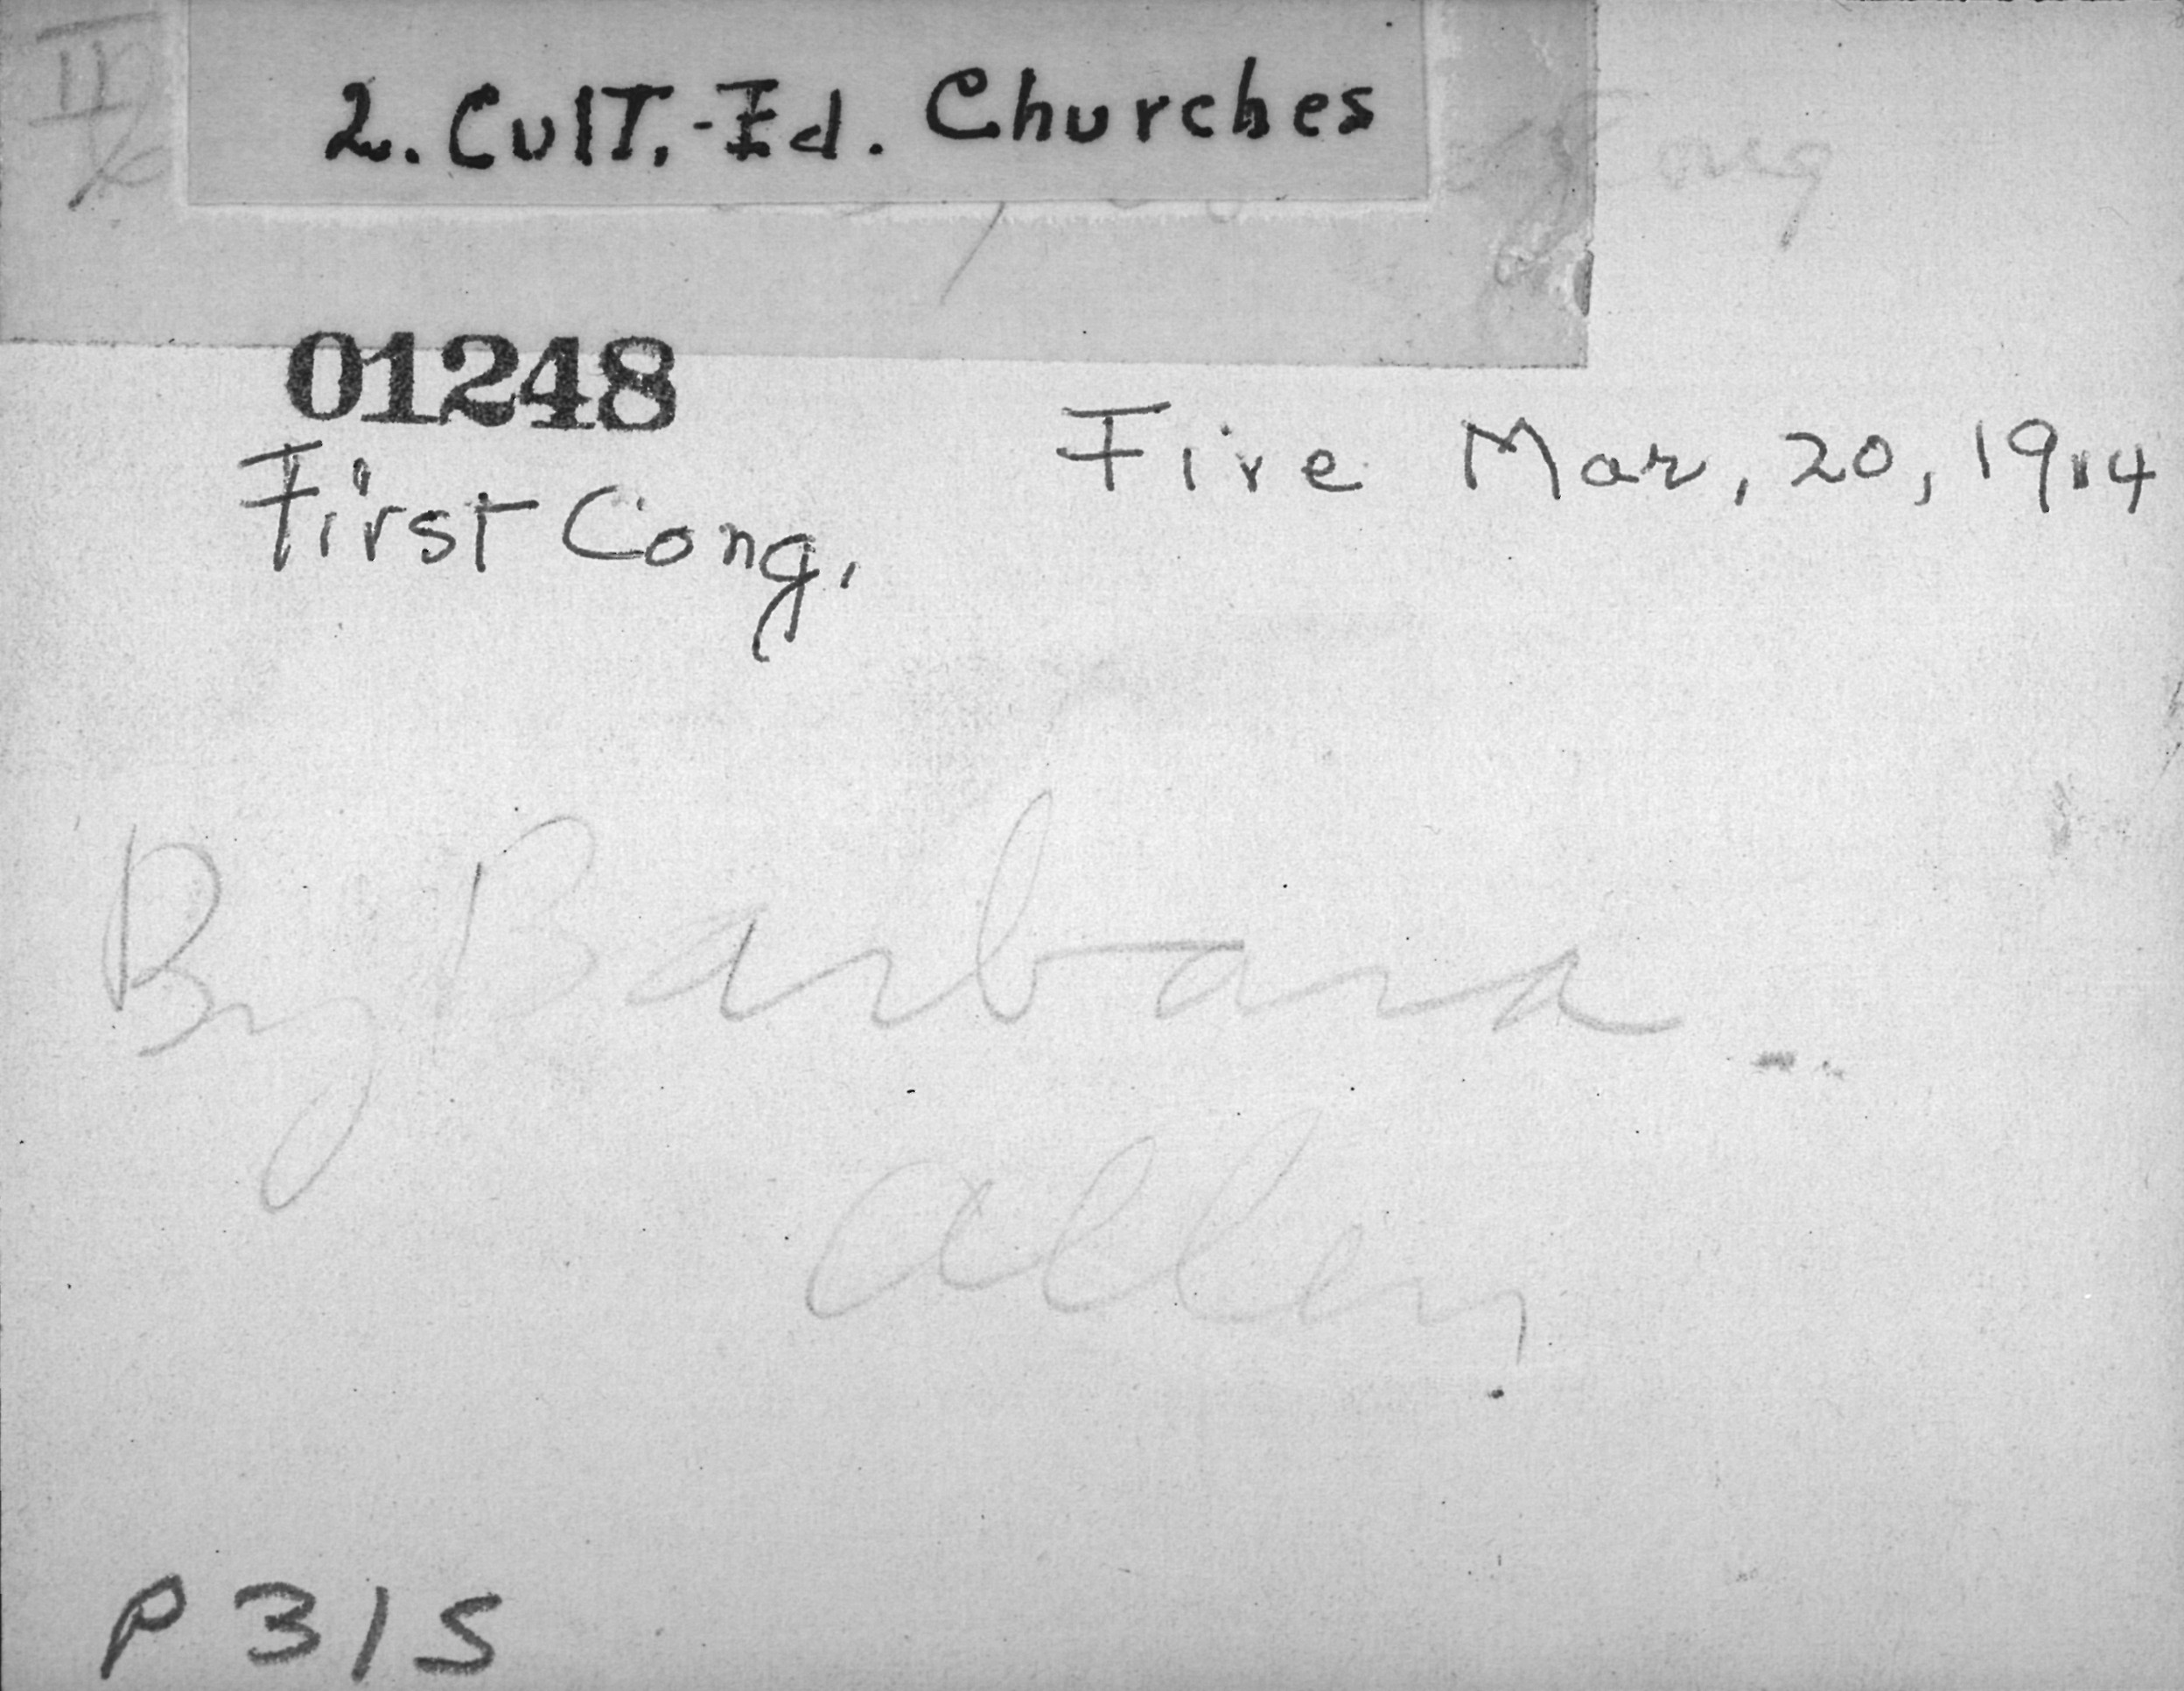 II
2. Cult.-Ed. Churches
Cong
01248
Fire Mar, 20, 1914
First Cong.
By Barbara
Allen
P 315